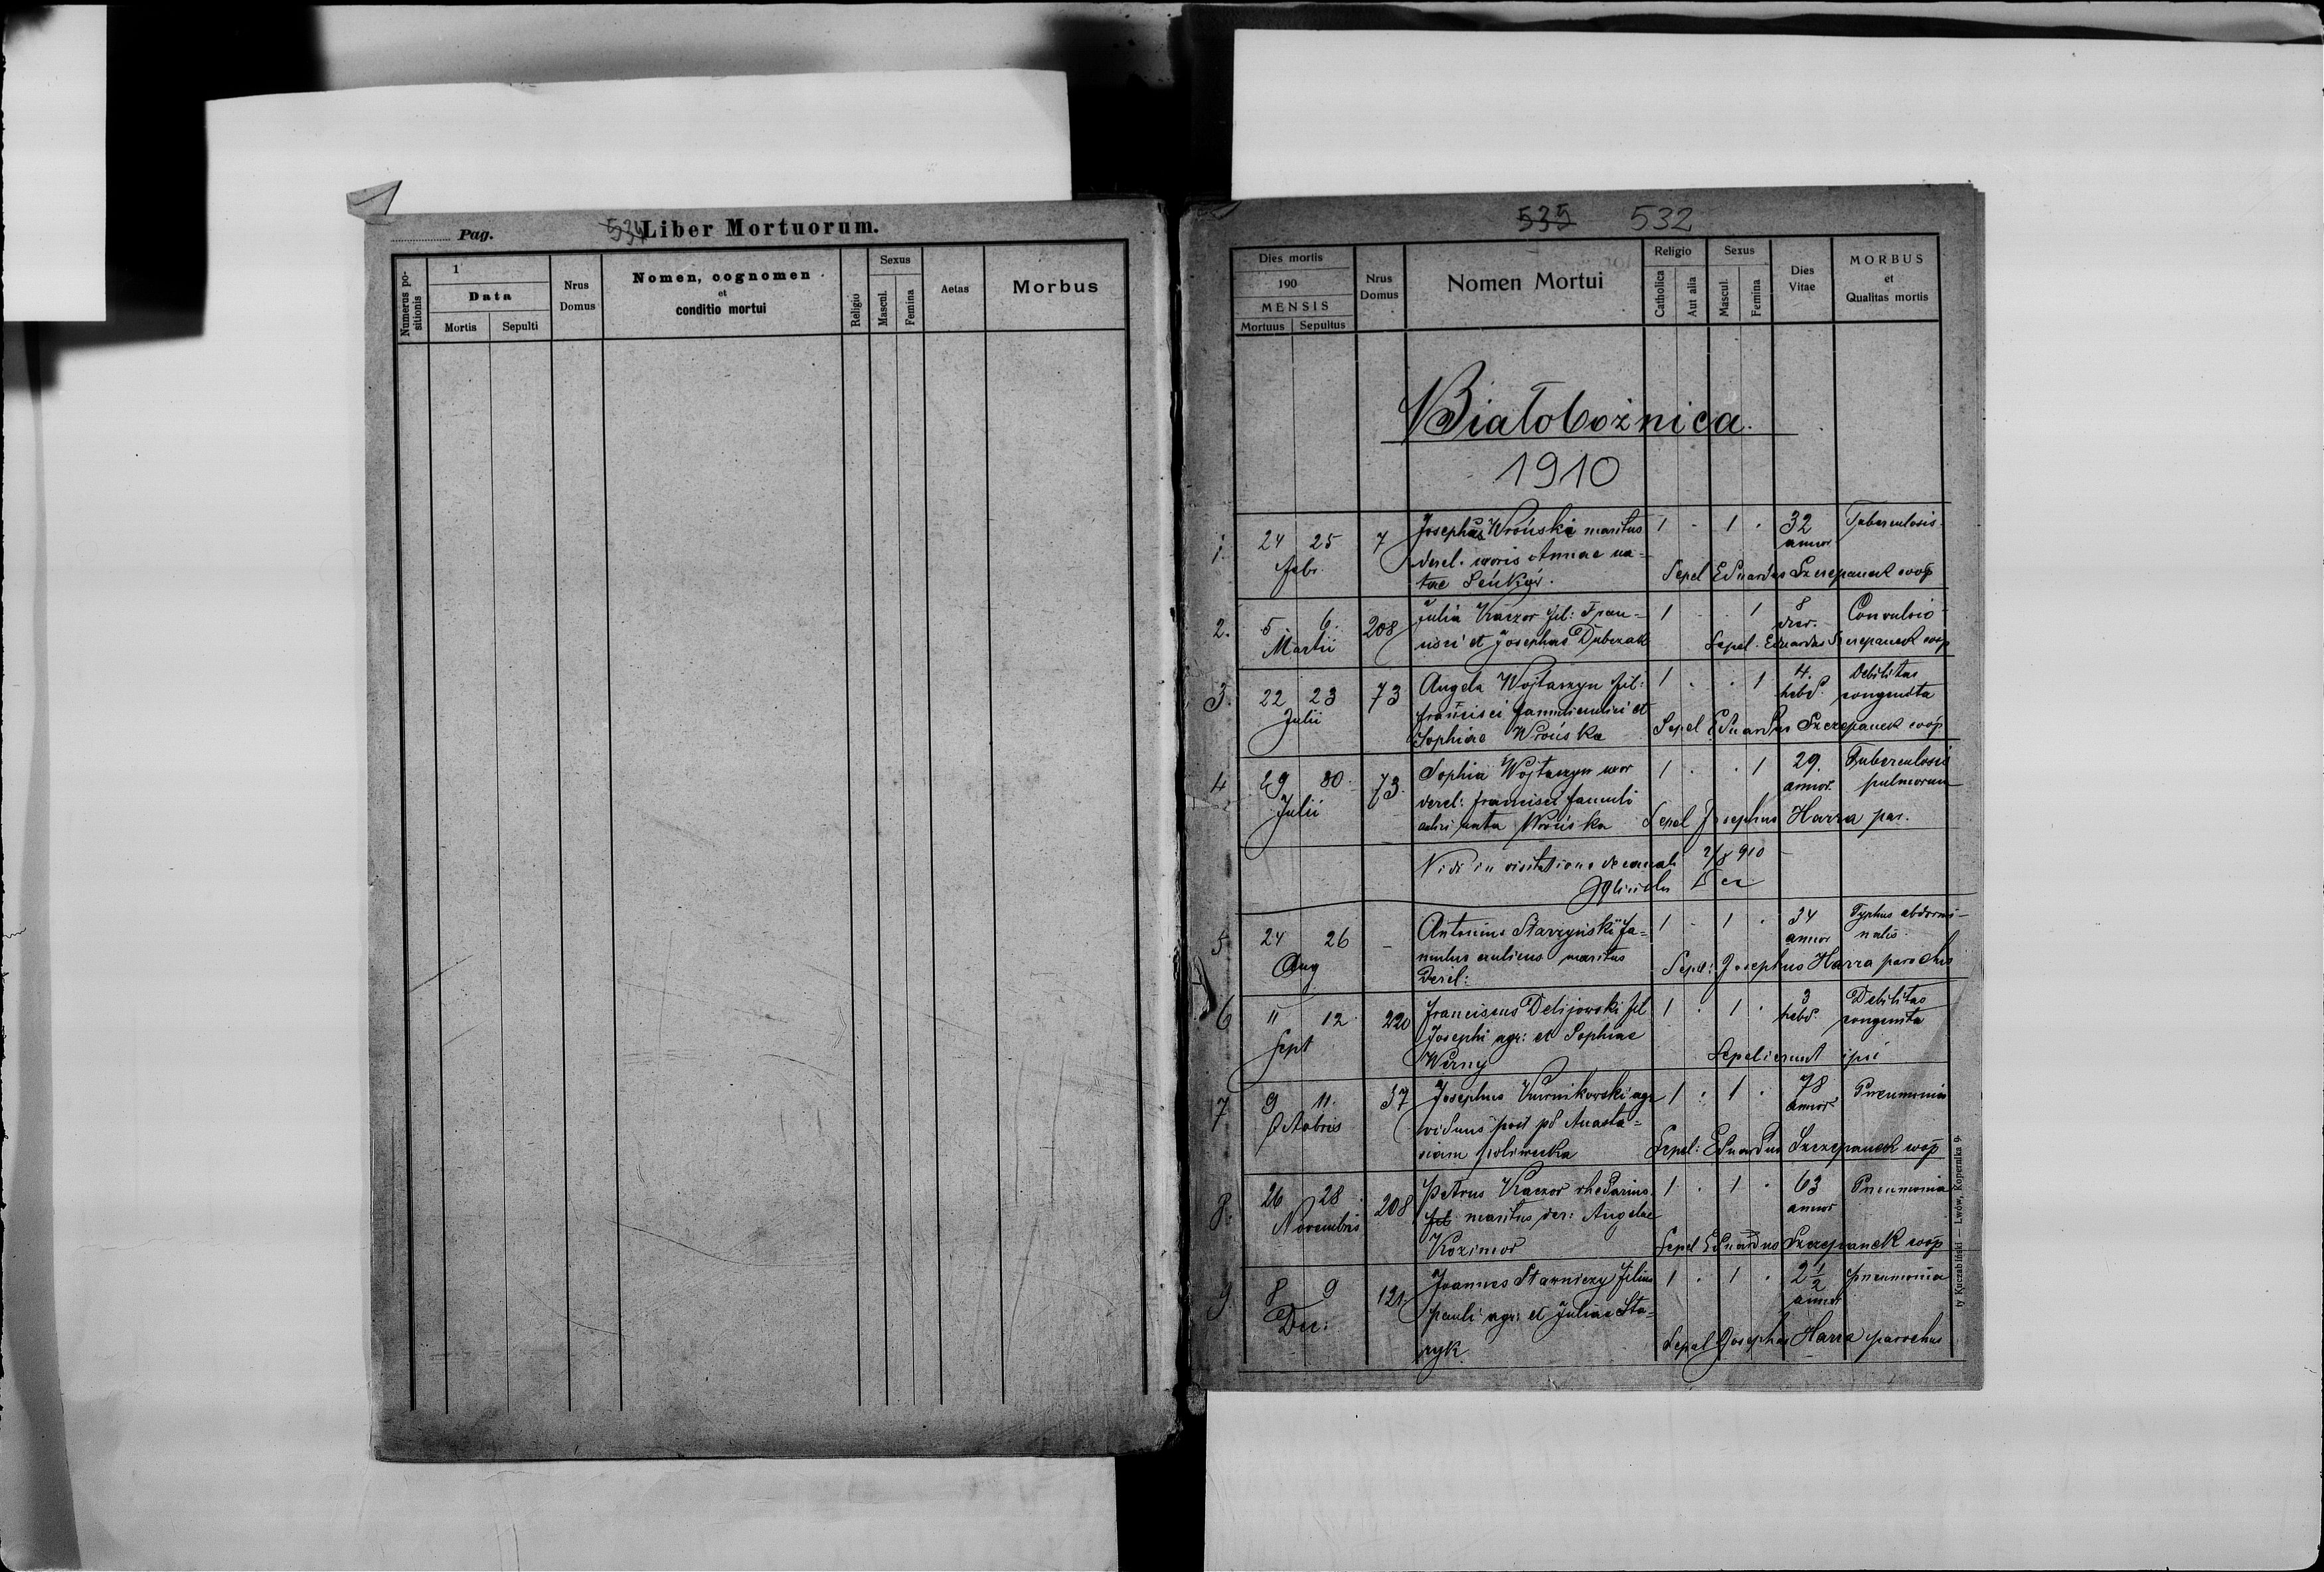 Pag.
534 Liber Mortuorum.
Numerus po-
sitionis
1
Data
Mortis Sepulti
Nrus
Domus
Nomen, cognomen
et
conditio mortui
Religio
Sexus
Mascul.
Femina
Aetas
Morbus
535 532
Dies mortis
190
MENSIS
Mortuus Sepultus
Nrus
Domus
Nomen Mortui
Religio
Catholica
Aut alia
Sexus
Mascul.
Femina
Dies
Vitae
MORBUS
et
Qualitas mortis
Białobożnica.
1910
1. 24 25 7 Josephus Wroński maritus 1 - 1 . 32 Tuberculosis
Febr. derel. uxoris Annae na- annor
tae Seńków. Sepel Eduardus Szczepanek coop
2. 5 6. 208 Julia Kaczor fil: Fran- 1 - . 1 8 Convulsio
Martii cisci et Josephas Dubczak Sepel. Eduardus Szczepanek coop
3. 22 23 73 Angela Wojtaszyn fil: 1 . . 1 4. Debilitas
Julii francisci famuli aulici et hebd. congenita
Sophiae Wrońska Sepel Eduardus Szczepanek coop
4 29 30 73. Sophia Wojtaszyn uxor 1 . . 1 29. Tuberculosis
Julii derel: francisci famuli annor. pulmorum
aulici nata Wrońska Sepel Josephus Harra par.
Vidi in visitatione decanali 2/8 910
5 24 26 - Antonius Starzyński fa- 1 - 1 . 34 Typhus abdomi-
Aug mulus aulicus maritus annor nalis
Derel: Sepel: Josephus Harra parochus
6 11 12 220 Franciscus Delijowski fil 1 . 1 . 3 Debilitas
Sept Josephi agr: et Sophiae hebd. congenita
Wirny Sepelierunt ipsi
7 9 11. 37 Josephus Kurnikowski agr 1 . 1 . 78 Pneumonia
Octobris viduus post pd Anasta- annor
siam Sepel: Eduardus Szczepanek coop
8. 26 28 208 Petrus Kaczor rhedarius 1 . 1 . 63 Pneumonia
Novembris fil maritus der: Angelae annor
Kozimor Sepel Eduardus Szczepanek coop
9. 8 9 121 Joannes Starniczy filius 1 . 1 . 2 1/2 pneumonia
Dec: Pauli agr: et Juliae Sta- annor
ryk Sepel Josephus Harra parochus
ty Kuczabiński — Lwów, Kopernika 9.